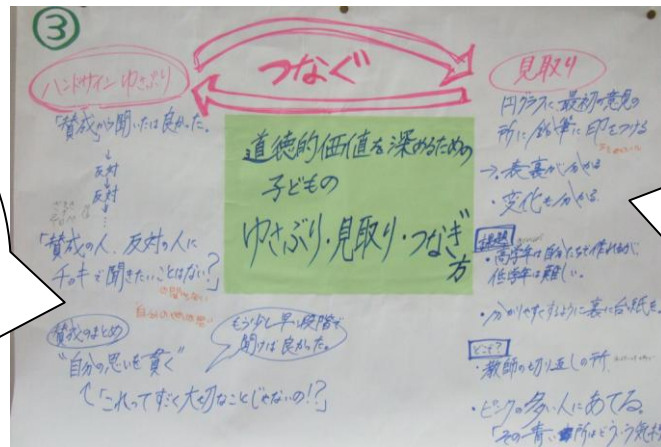 ③
つなぐ
ハンドサイン ゆさぶり
「賛成」から聞いたは良かった。
↓
反対
↓
反対
↓
「賛成の人、反対の人に
チョキで聞きたいことはない?」
賛成のまとめ
"自分の思いを貫く"
「これってすごく大切なことじゃないの!?」
もう少し早い段階で
聞けば良かった。
道徳的価値を深めるための
子どもの
ゆさぶり・見取り・つなぎ方
見取り
円グラフに最初の意見の
所に鉛筆に印をつける
→・表裏が分かる
・変化も分かる
・高学年は自分たちで作れるが、
低学年は難しい。
・分かりやすくするように裏に台紙を
どこで?
・教師の切り返しの所
・ピンクの多い人にあてる。
「その青い所はどういう気持